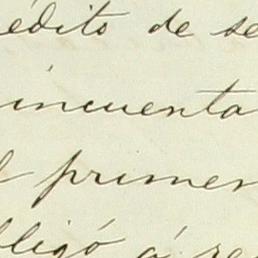 édito de se
incuenta
l primer
bligó á re